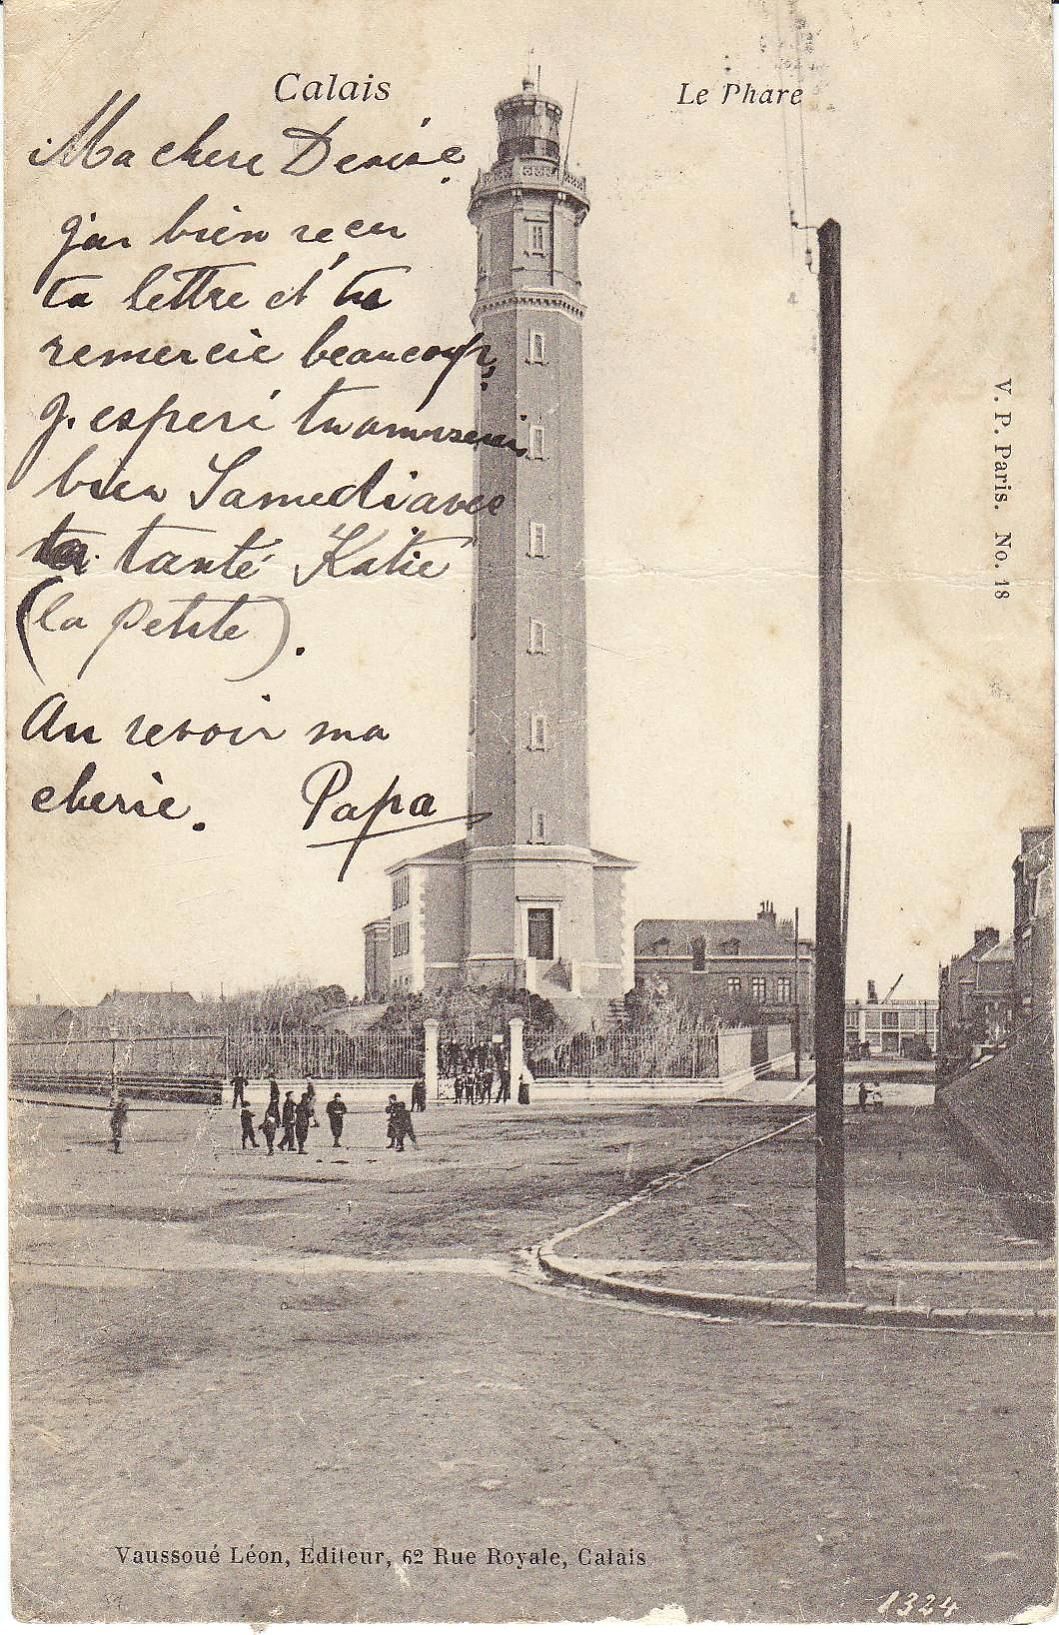 Calais
Le Phare
Ma chere Denise.
j'ai bien reçu
ta lettre et te
remercie beaucoup,
J'espere tu amuserais
bien Samedi avec
ta tante Katie
(la petite).
Au revoir ma
cherie. Papa
V. P. Paris. No. 18
Vaussoué Léon, Editeur, 62 Rue Royale, Calais
1324